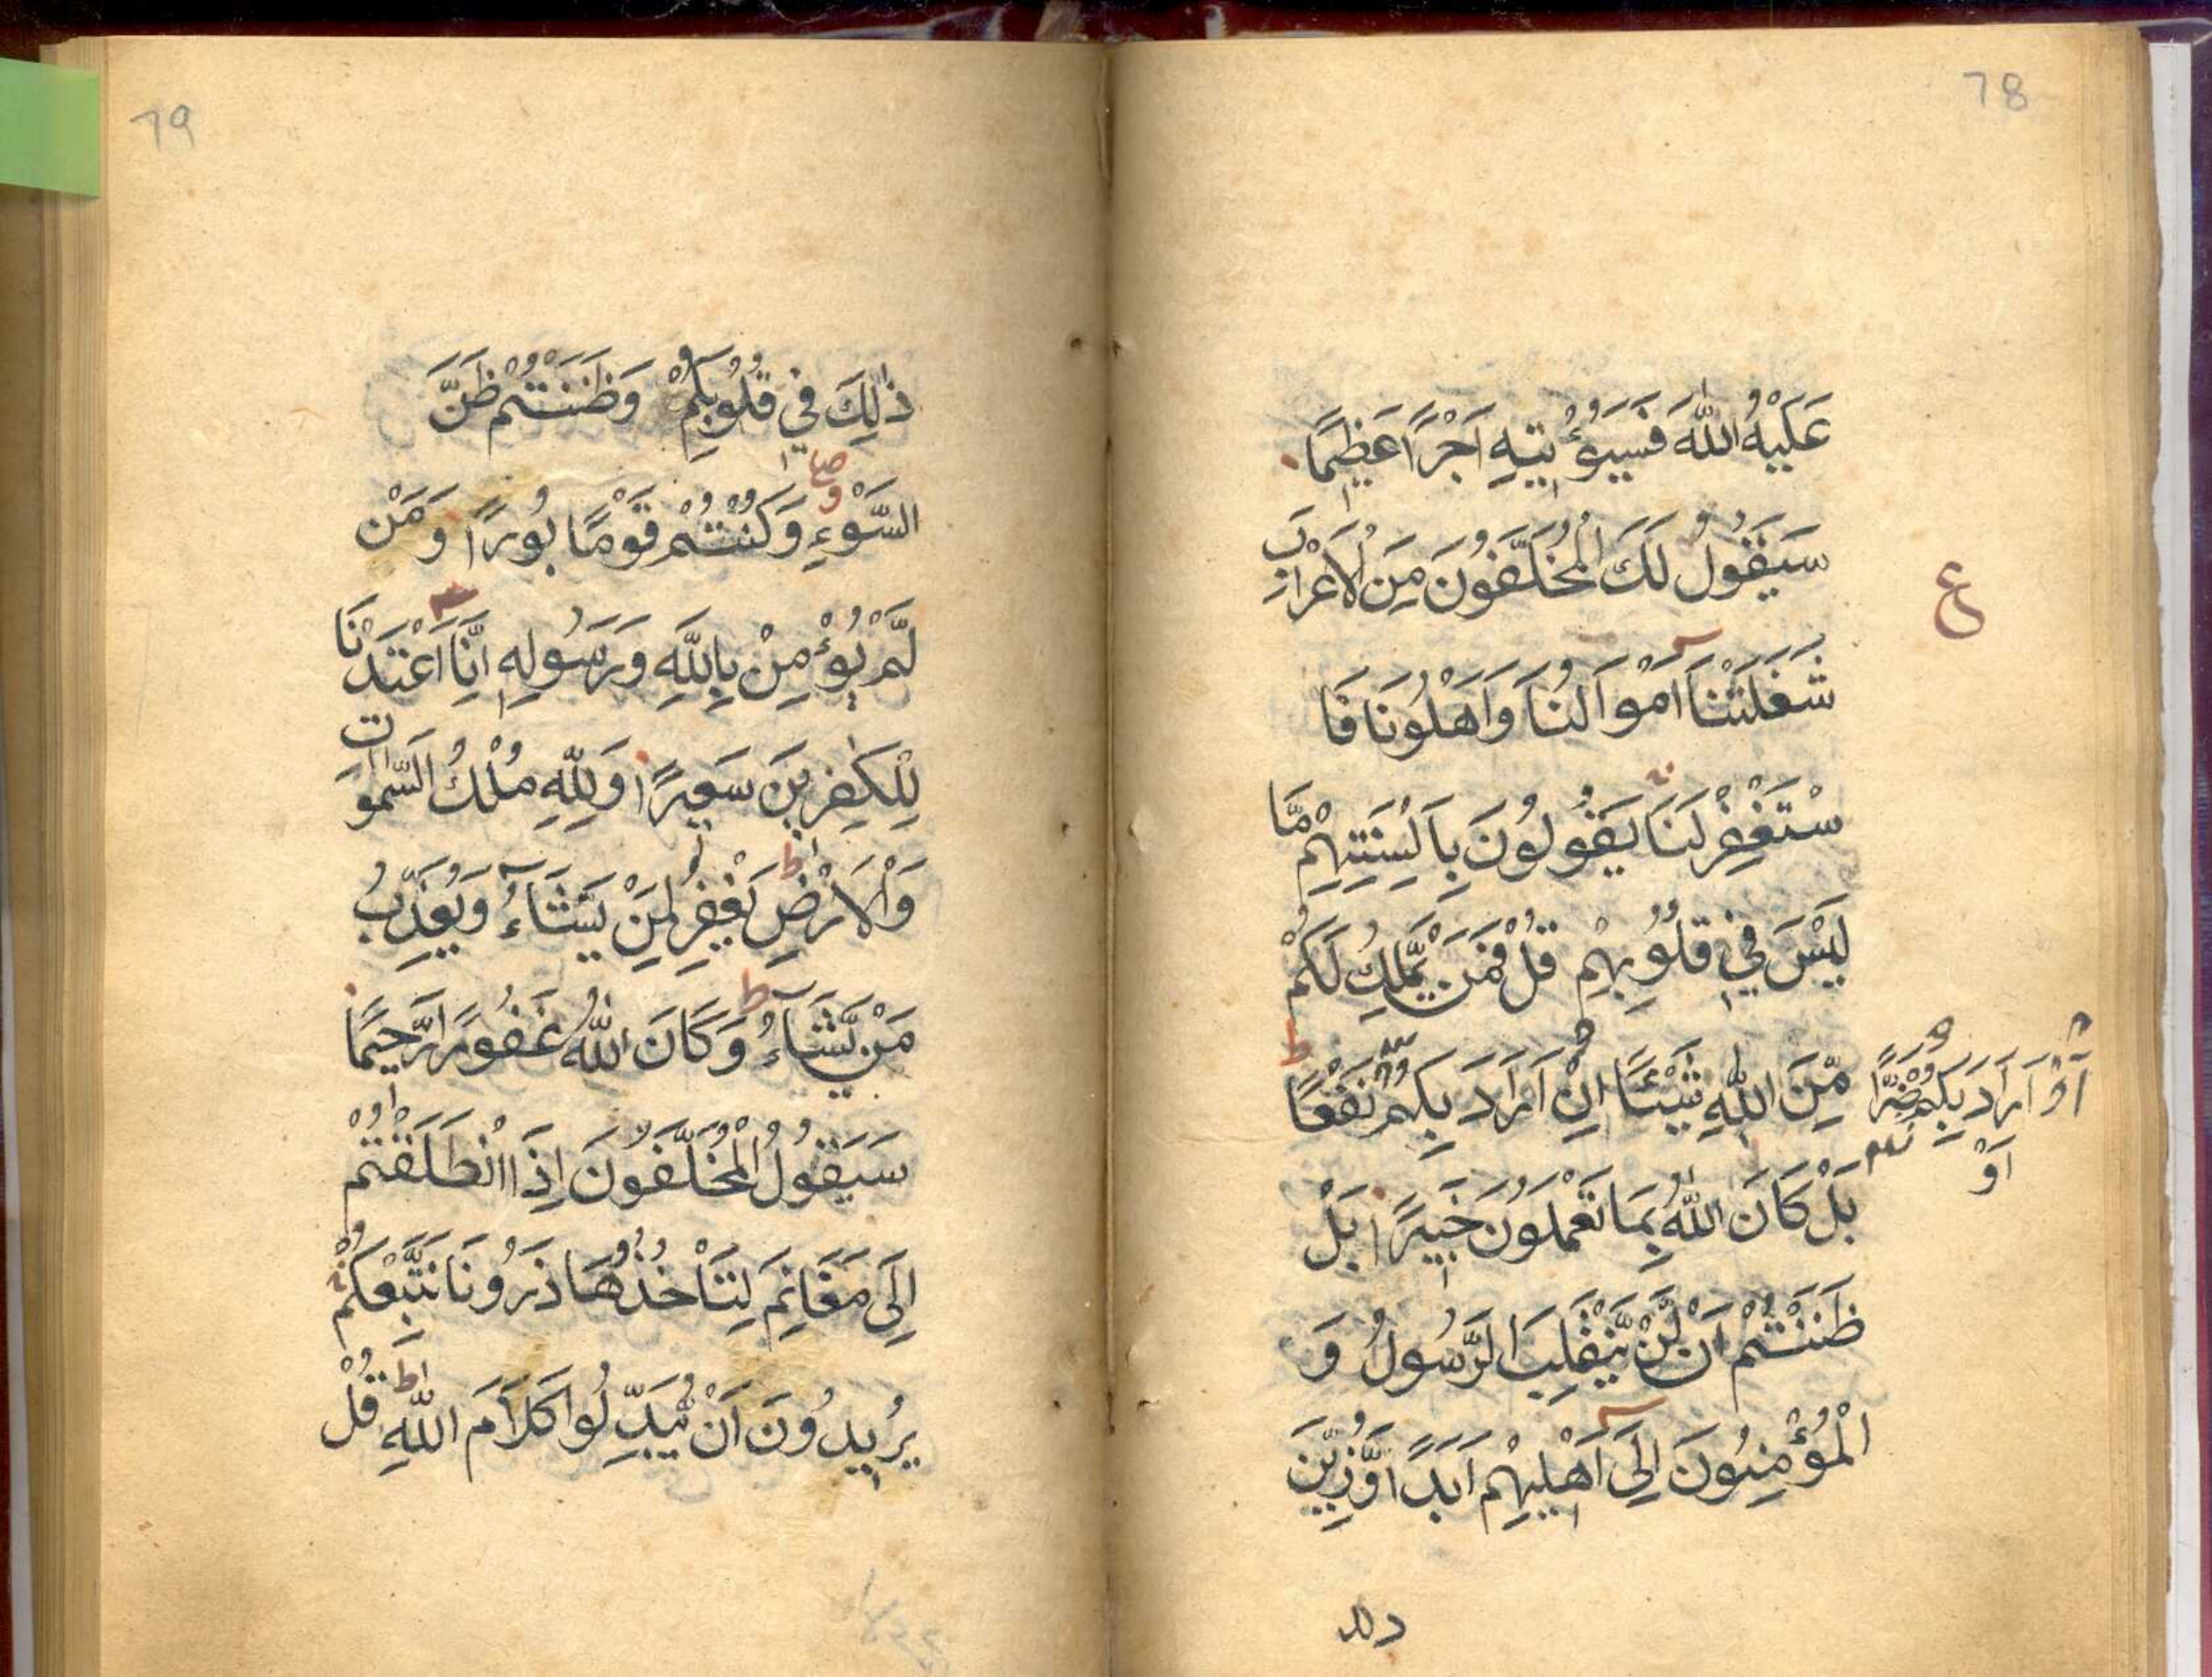 78
عَلَيْهُ اللّٰهَ فَسَيُؤْتِيهِ اَجْرًا عَظِيمًا
سَيَقُولُ لَكَ الْمُخَلَّفُونَ مِنَ الْاَعْرَابِ
ع
شَغَلَتْنَا اَمْوَالُنَا وَاَهْلُونَا فَا
سْتَغْفِرْ لَنَا يَقُولُونَ بِاَلْسِنَتِهِمْ مَّا
لَيْسَ فِي قُلُوبِهِمْ قُلْ فَمَنْ يَّمْلِكُ لَكُمْ
مِّنَ اللّٰهِ شَيْئًا اِنْ اَرَادَ بِكُمْ نَفْعًا ط
اَوْ اَرَادَ بِكُمْ ضَرًّا
اَوْ
بَلْ كَانَ اللّٰهُ بِمَا تَعْمَلُونَ خَبِيرًا بَلْ
ظَنَنْتُمْ اَنْ لَّنْ يَّنْقَلِبَ الرَّسُولُ وَ
الْمُؤْمِنُونَ اِلَى اَهْلِيهِمْ اَبَدًا وَّزُيِّنَ
79
ذٰلِكَ فِي قُلُوبِكُمْ وَظَنَنْتُمْ ظَنَّ
السَّوْءِ وَكُنْتُمْ قَوْمًا بُورًا وَمَنْ
لَّمْ يُؤْمِنْ بِاللّٰهِ وَرَسُولِهِ اِنَّا اَعْتَدْنَا
لِلْكٰفِرِينَ سَعِيرًا وَلِلّٰهِ مُلْكُ السَّمٰوَاتِ
وَالْاَرْضِ ط يَغْفِرُ لِمَنْ يَشَآءُ وَيُعَذِّبُ
مَنْ يَّشَآءُ ط وَكَانَ اللّٰهُ غَفُورًا رَّحِيمًا
سَيَقُولُ الْمُخَلَّفُونَ اِذَا انْطَلَقْتُمْ
اِلَى مَغَانِمَ لِتَأْخُذُوْهَا ذَرُونَا نَتَّبِعْكُمْ
يُرِيدُونَ اَنْ يُّبَدِّلُوا كَلَامَ اللّٰهِ ط قُلْ